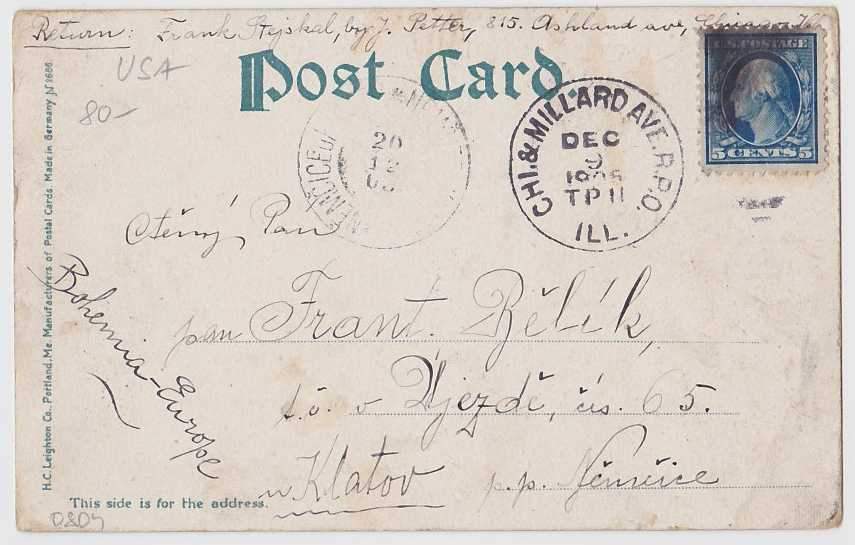 Return: Frank Stejskal, by J. Petter, 815. Ashland ave, Chicago Ill.
USA
80-
Post Card.
U.S. POSTAGE
5 CENTS 5
CHI. & MILLARD AVE. R.P.O.
DEC
9
TP 11
ILL.
20
12
Ctěný Pan
pan Frant. Bělík,
t.č. v Újezdě, čís. 65.
u Klatov p.p. Němčice
Bohemia-Europe
H.C. Leighton Co., Portland, Me. Manufacturers of Postal Cards. Made in Germany N 1686
This side is for the address.